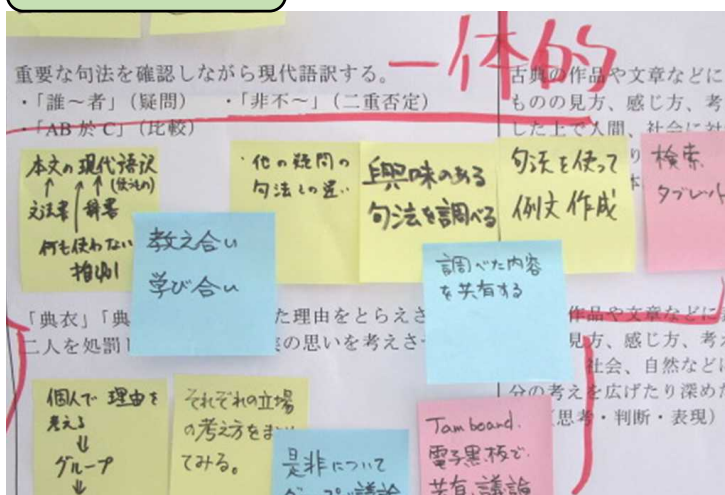 一体的
重要な句法を確認しながら現代語訳する。
・「誰～者」(疑問)　・「非不～」(二重否定)
・「AB 於 C」(比較)
古典の作品や文章などに
ものの見方、感じ方、考
した上で人間、社会に
本文の現代語訳
(使うもの)
文法書
辞書
何も使わない
推測
教え合い
学び合い
・他の疑問の
句法との違い
興味のある
句法を調べる
句法を使って
例文作成
検索
タブレット
調べた内容
を共有する
「典衣」「典
た理由をとらえさ
二人を処罰
の思いを考えさ
作品や文章などに
見方、感じ方、考え
社会、自然などに
分の考えを広げたり深めた
思考・判断・表現)
個人で理由を
考える
グループ
それぞれの立場
の考え方をまとめ
てみる。
是非について
グループで議論
Jamboard.
電子黒板で
共有、議論